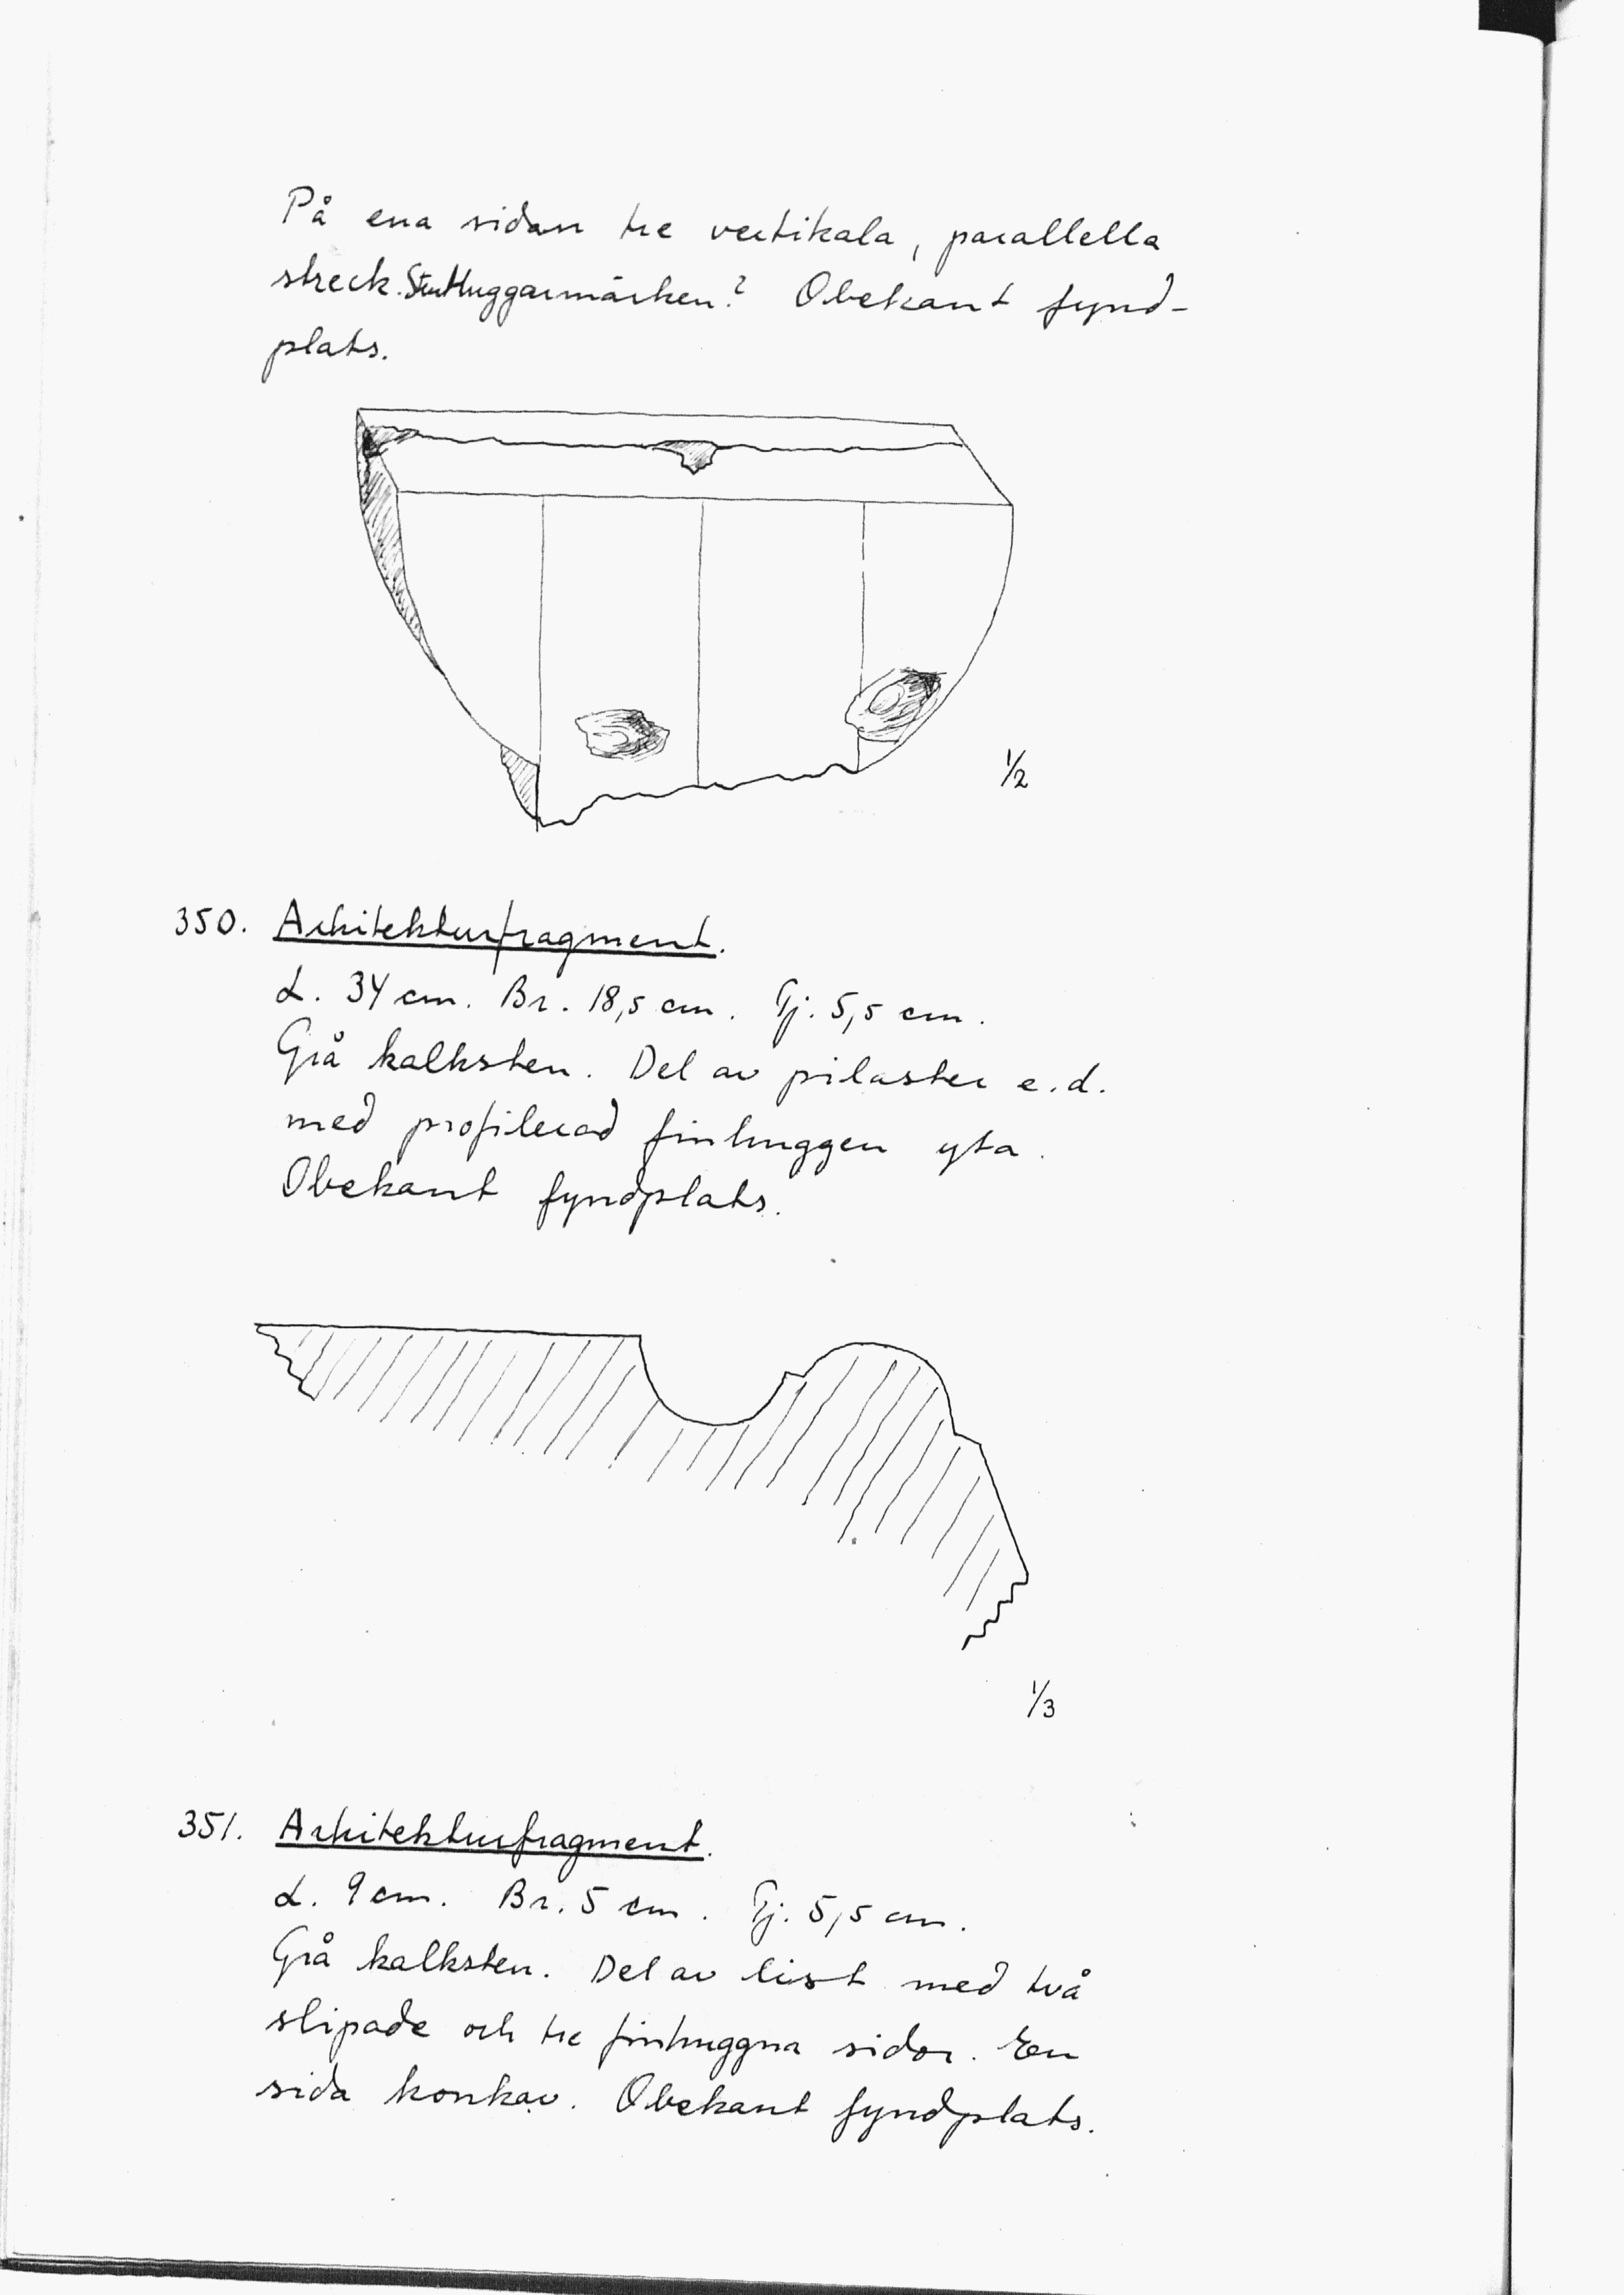 På ena sidan tre vertikala, parallella
streck. Stenhuggarmärken? Obekant fynd-
plats.
1/2
350. Arkitekturfragment.
L. 34 cm. Br. 18,5 cm. Tj. 5,5 cm.
Grå kalksten. Del av pilaster e.d.
med profilerad finhuggen yta.
Obekant fyndplats.
1/3
351. Arkitekturfragment.
L. 9 cm. Br. 5 cm. Tj. 5,5 cm.
Grå kalksten. Del av list med två
slipade och tre finhuggna sidor. En
sida konkav. Obekant fyndplats.